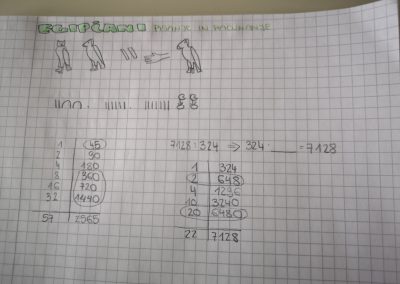 EGIPČANI PISANJE IN RAČUNANJE
7128 : 324 ⇒ 324 · ____ = 7128
1 45
2 90
4 180
8 360
16 720
32 1440
57 2565
1 324
2 648
4 1236
10 3240
20 6480
22 7128